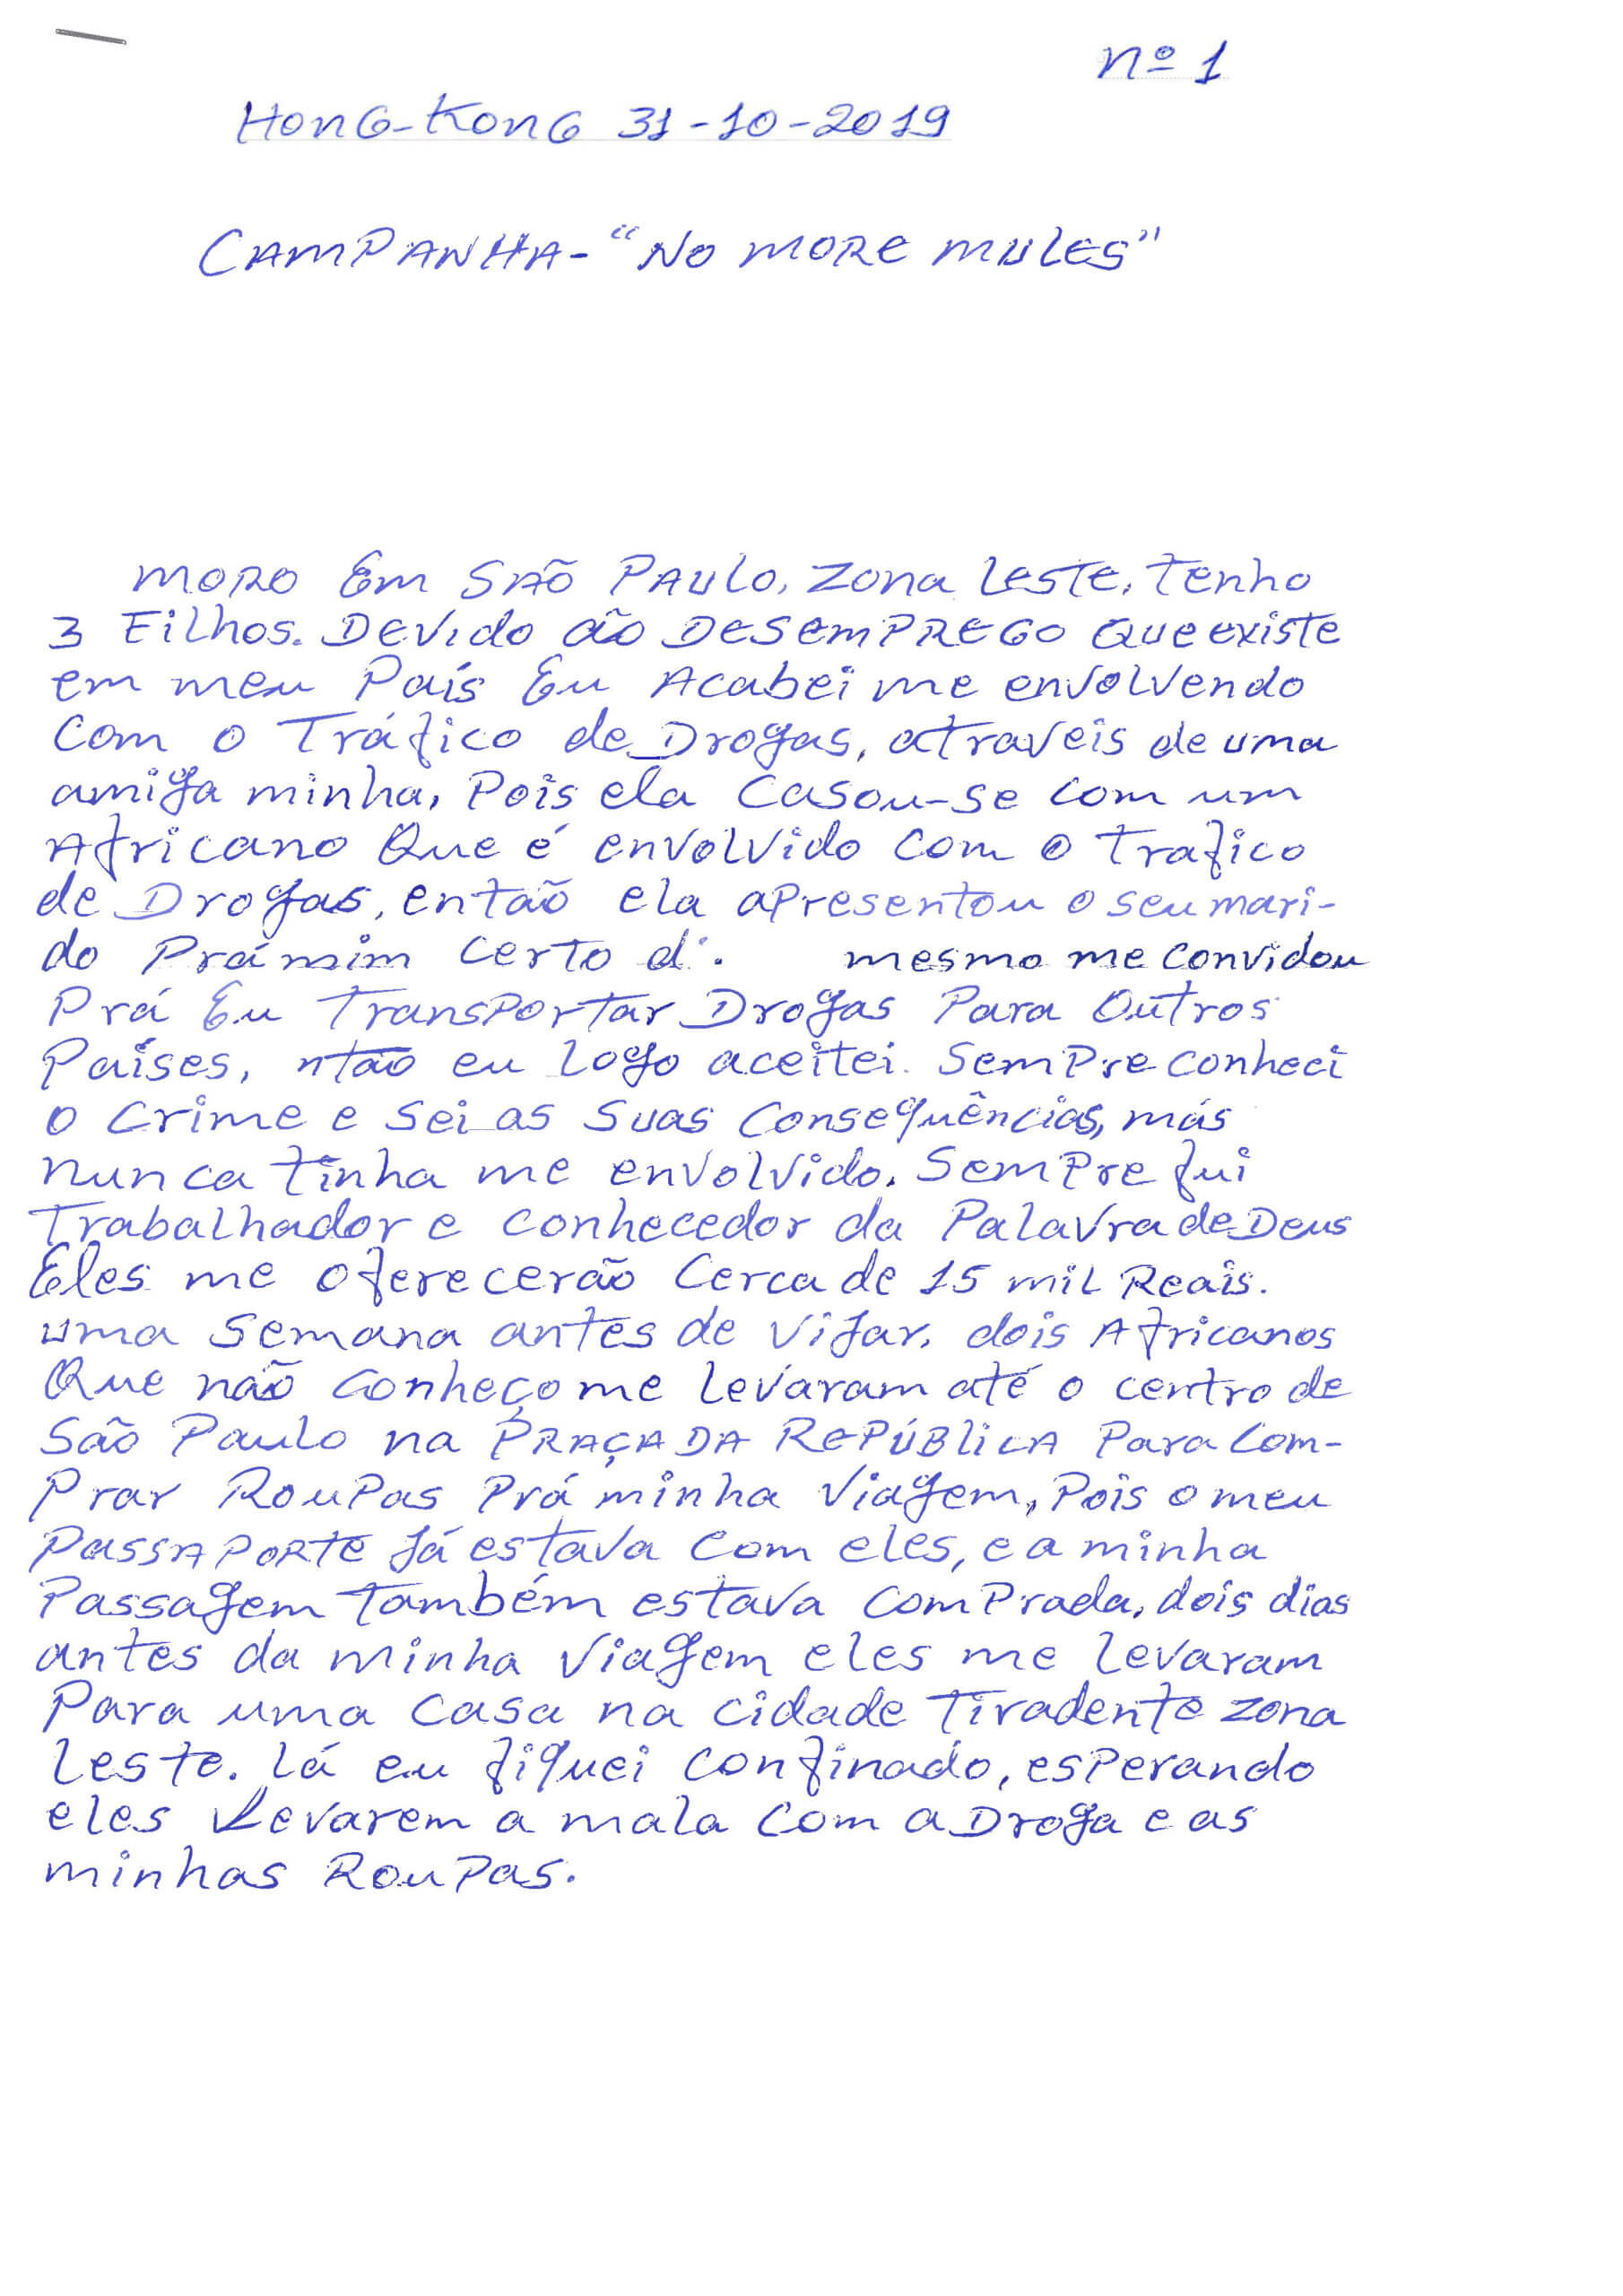 nº 1
HONG-KONG 31-10-2019
CAMPANHA-"NO MORE MULES"
MORO Em SÃO PAULO, ZONA LESTE, Tenho
3 Filhos. DEVido ão DESEMPREGO QUE existe
em meu País Eu Acabei me envolvendo
Com o Tráfico de Drogas, atraveis de uma
amiga minha, Pois ela Casou-se com um
Africano Que é envolvido com o Trafico
de Drogas, então ela aPresentou o seu mari-
do Prá mim Certo d. mesmo me convidou
Prá Eu TransPortar Drogas Para Outros
Países, ntão eu logo aceitei. SemPre conheci
o Crime e Sei as Suas Consequências, más
nunca tinha me envolvido. SemPre fui
Trabalhador e conhecedor da Palavra de Deus
Eles me oferecerão Cerca de 15 mil Reais.
uma Semana antes de viJar, dois Africanos
Que não conheço me levaram até o centro de
São Paulo na PRAÇA DA REPÚBLiCA Para Com-
Prar RouPas Prá minha Viagem, Pois o meu
PassAPORTE Já estava com eles, e a minha
Passagem também estava comPrada, dois dias
antes da minha Viagem eles me levaram
Para uma Casa na cidade Tiradente zona
leste. lá eu fiquei confinado, esPerando
eles levarem a mala Com a Droga e as
minhas RouPas.